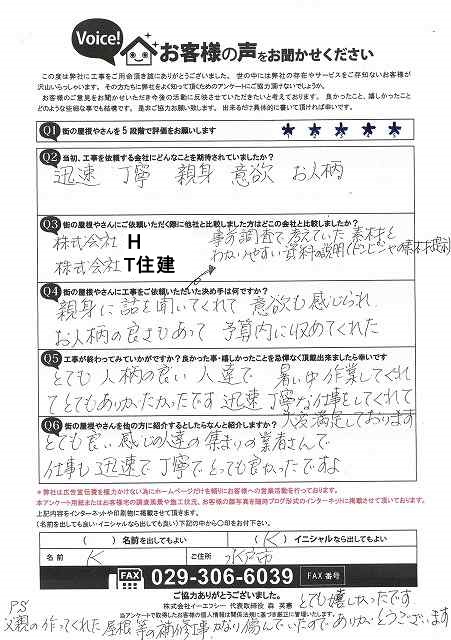 Voice!
お客様の声をお聞かせください
この度は弊社に工事をご用命頂き誠にありがとうございます。 世の中には弊社の存在やサービスをご存知ないお客様が
沢山いらっしゃいます。その方たちに弊社をよく知って頂くためのアンケートにご協力頂けないでしょうか。
お客様のご意見をお聞かせいただき今後の活動に反映させていただきたいと考えております。 良かったこと、嬉しかったこと
どのような些細な事でも結構です。 是非ご協力お願い致します。 出来るだけ具体的に書いて頂ければ幸いです。
Q1 街の屋根やさんを5段階で評価をお願いします ★ ★ ★ ★ ★
Q2 当初、工事を依頼する会社にどんなことを期待されていましたか?
迅速 丁寧 親身 意欲 お人柄
Q3 街の屋根やさんにご依頼いただく際に他社と比較しました方はどこの会社と比較しましたか?
株式会社 H
株式会社 T住建
事前調査で考えていた素材を
わかいやすい資料の説明
Q4 街の屋根やさんに工事をご依頼いただいた決め手は何ですか?
親身に話を聞いてくれて 意欲も感じられ
お人柄の良さもあって 予算内に収めてくれた
Q5 工事が終わってみていかがですか?良かった事・嬉しかったことを忌憚なく頂戴出来ましたら幸いです
とても 人柄の良い 人達で 暑い中作業してくれ
てとてもありがたかったです 迅速 丁寧な仕事をしてくれて
大変満足しております
Q6 街の屋根やさんを他の方に紹介するとしたらなんと紹介しますか?
とても良い感じの人達の集まりの業者さんで
仕事も 迅速で 丁寧で とっても良かったですよ
＊弊社は広告宣伝費を極力かけない為にホームページだけを頼りにお客様への営業活動を行っております。
本アンケート用紙またはお客様宅の調査風景や施工状況、お客様の顔写真を随時ブログ形式のインターネットに掲載させて頂いております。
上記内容をインターネットや印刷物に掲載させて頂けますか?
(名前を出しても良い・イニシャルなら出しても良い) 下記の中から〇印をお付下さい。
( )名前を出してもよい ( K )イニシャルなら出してもよい
名前 K ご住所 水戸市
FAX 029-306-6039 FAX 番号
ご協力ありがとうございました。
株式会社イーエフシー 代表取締役 森 英憲
当アンケートで取得したお客様の個人情報は関係法規に基づき厳正に管理いたします。
とても嬉しかったです
P.S
父親の作ってくれた屋根等の補修工事かなり傷んでいたのでありがとうございます